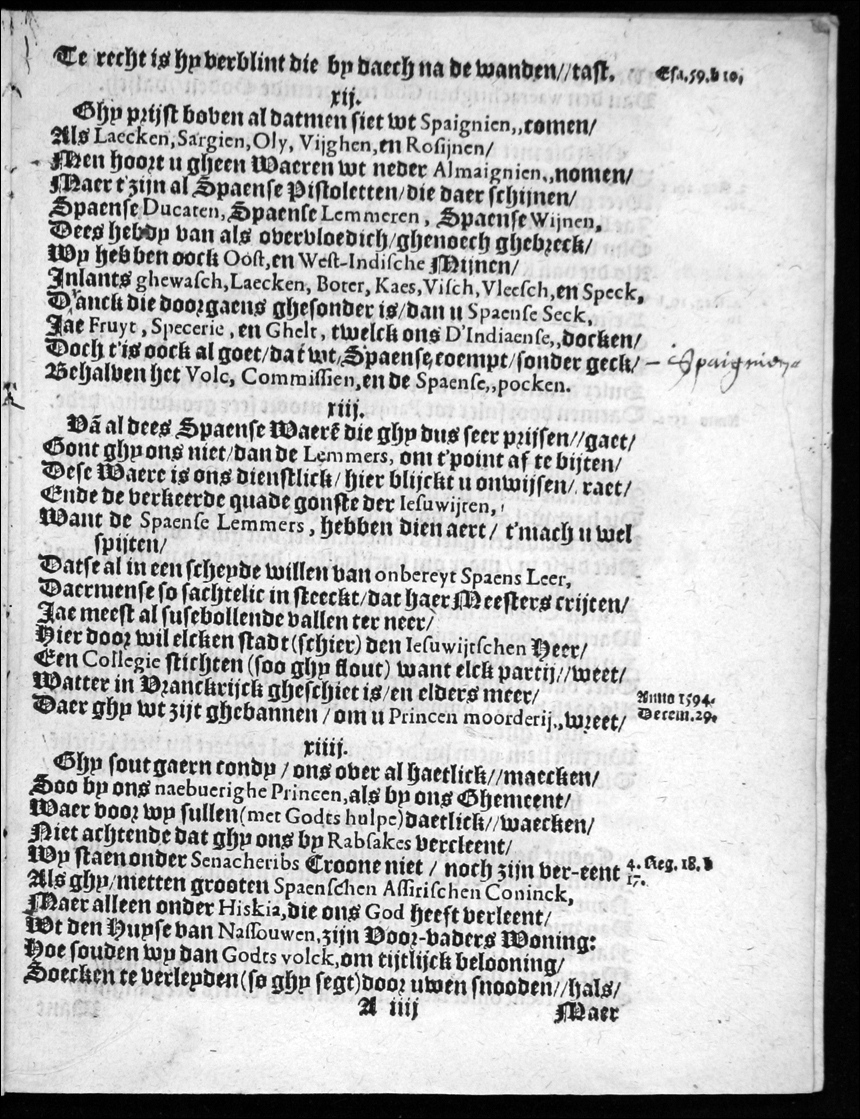 Te recht is hy verblint die by daech na de wanden//tast. Esa.59.b 10.
xij.
Ghy prijst boven al datmen siet wt Spaignien,,comen/
Als Laecken, Sargien, Oly, Vijghen, en Rosijnen/
Men hoort u gheen Waeren wt neder Almaignien,,nomen/
Maer t'zijn al Spaense Pistoletten/die daer schijnen/
Spaense Ducaten, Spaense Lemmeren, Spaense Wijnen,
Dees hebdy van als overvloedich/ghenoech ghebreck/
Wy hebben oock Oost, en West-Indische Mijnen/
Inlants ghewasch, Laecken, Boter, Kaes, Visch, Vleesch, en Speck,
D'ranck die doorgaens ghesonder is/dan u Spaense Seck,
Jae Fruyt, Specerie, en Ghelt, twelck ons D'Indiaense,,docken/
Doch t'is oock al goet/dat wt, Spaense, coempt/sonder geck/ – Spaignien
Behalven het Volc, Commissien, en de Spaense,,pocken.
xiij.
Vā al dees Spaense Waerē die ghy dus seer prijsen//gaet/
Gont ghy ons niet/dan de Lemmers, om t'point af te bijten/
Dese Waere is ons dienstlick/hier blijckt u onwijsen/, raet/
Ende de verkeerde quade gonste der Iesuwijten,
Want de Spaense Lemmers, hebben dien aert/ t'mach u wel
spijten/
Datse al in een scheyde willen van onbereyt Spaens Leer,
Daermense so sachtelic in steeckt/dat haer Meesters crijten/
Jae meest al susebollende vallen ter neer/
Hier door wil elcken stadt (schier) den Iesuwijtschen Heer/
Een Collegie stichten (soo ghy stout) want elck partij//weet/
Watter in Vranckrijck gheschiet is/en elders meer/ Anno 1594.
Daer ghy wt zijt ghebannen/om u Princen moorderij,,wreet/ Decem.29.
xiiij.
Ghy sout gaern condy/ons over al haetlick//maecken/
Soo by ons naebuerighe Princen, als by ons Ghemeent/
Waer voor wy sullen (met Godts hulpe) daetlick//waecken/
Niet achtende dat ghy ons by Rabsakes vercleent/
Wy staen onder Senacheribs Croone niet/noch zijn ver-eent 4. Reg. 18. b
Als ghy/metten grooten Spaenschen Assirischen Coninck, 17.
Maer alleen onder Hiskia, die ons God heeft verleent/
Wt den Huyse van Nassouwen, zijn Voor-vaders Woning:
Hoe souden wy dan Godts volck, om tijtlijck belooning/
Soecken te verleyden (so ghy segt) door uwen snooden//hals/
A iiij Maer